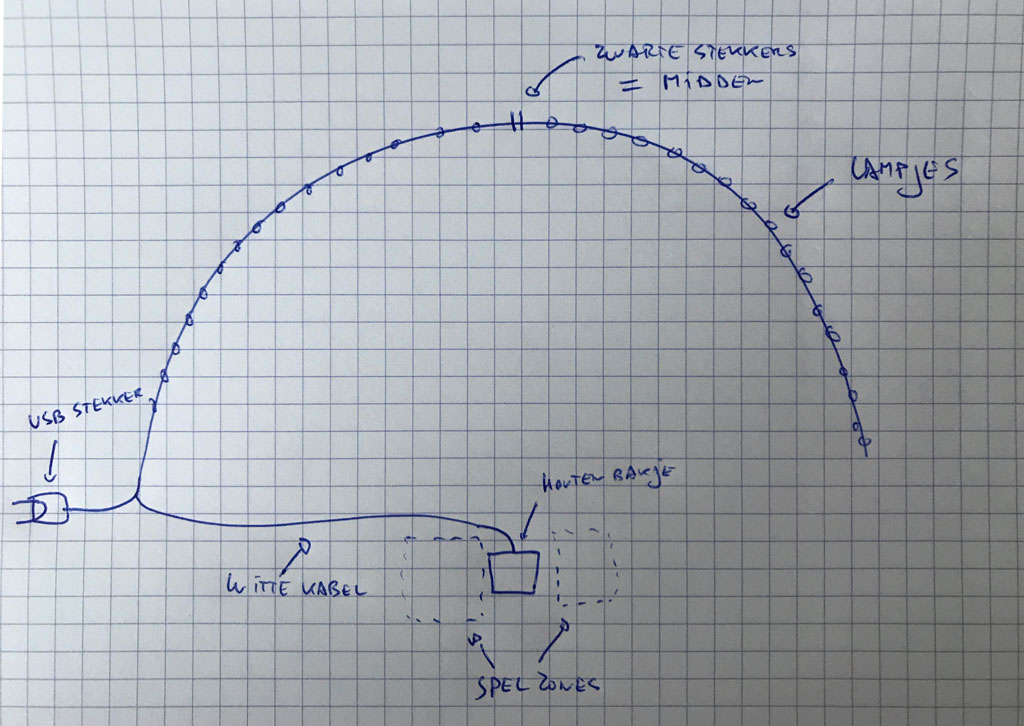 ZWARTE STEKKERS
= MIDDEN
LAMPJES
USB STEKKER
HOUTEN BAKJE
WITTE KABEL
SPEL ZONES